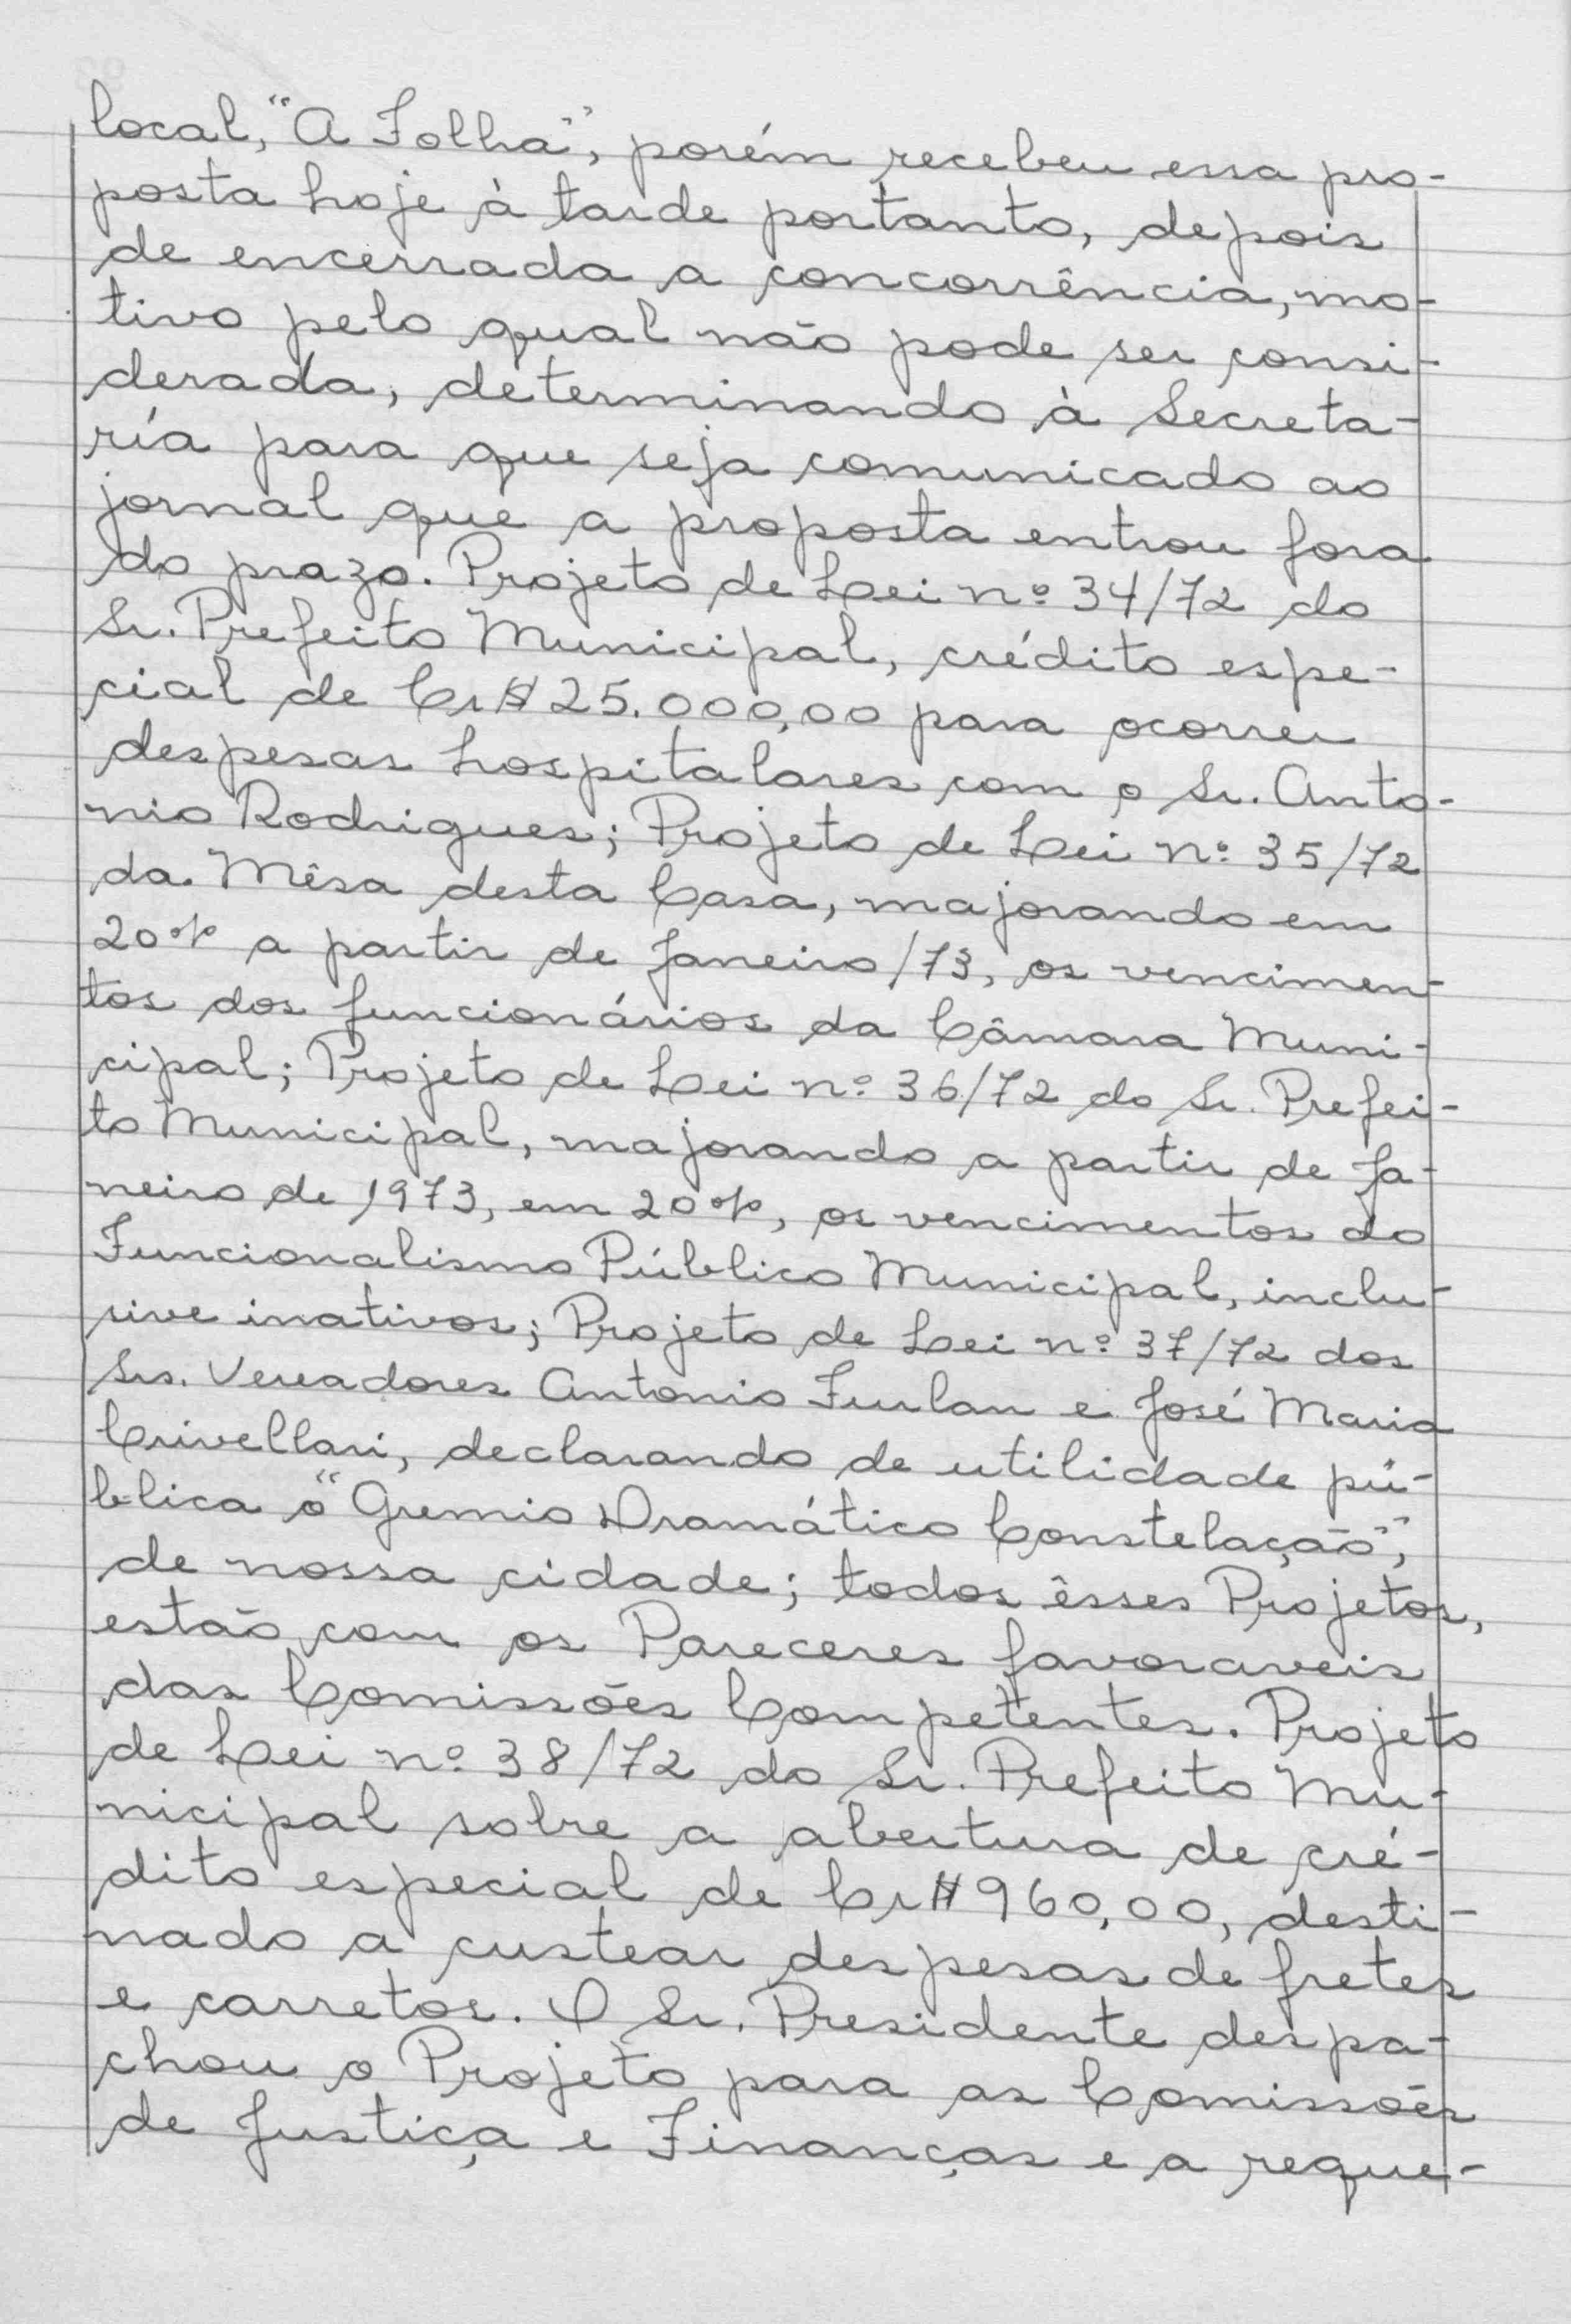 local, "A Folha", porém recebeu essa pro-
posta hoje à tarde portanto, depois
de encerrada a concorrência, mo-
tivo pelo qual não pode ser consi-
derada, determinando à Secreta-
ría para que seja comunicado ao
jornal que a proposta entrou fora
do prazo. Projeto de Lei nº 34/72 do
Sr. Prefeito Municipal, crédito espe-
cial de Cr$ 25.000,00 para ocorrer
despesas hospitalares com o Sr. Anto-
nio Rodrigues; Projeto de Lei nº 35/72
da Mêsa desta Casa, majorando em
20% a partir de Janeiro/73, os vencimen-
tos dos funcionários da Câmara Muni-
cipal; Projeto de Lei nº 36/72 do Sr. Prefei-
to Municipal, majorando a partir de Ja-
neiro de 1973, em 20%, os vencimentos do
Funcionalismo Público Municipal, inclu-
sive inativos; Projeto de Lei nº 37/72 dos
Srs. Vereadores Antonio Furlan e José Maria
Crivellari, declarando de utilidade pú-
blica o "Gremio Dramático Constelação",
de nossa cidade; todos êsses Projetos,
estão com os Pareceres favoraveis
das Comissões Competentes. Projeto
de Lei nº 38/72 do Sr. Prefeito Mu-
nicipal sobre a abertura de cré-
dito especial de Cr$ 960,00, desti-
nado a custear despesas de fretes
e carretos. O Sr. Presidente despa-
chou o Projeto para as Comissões
de Justiça e Finanças e a reque-